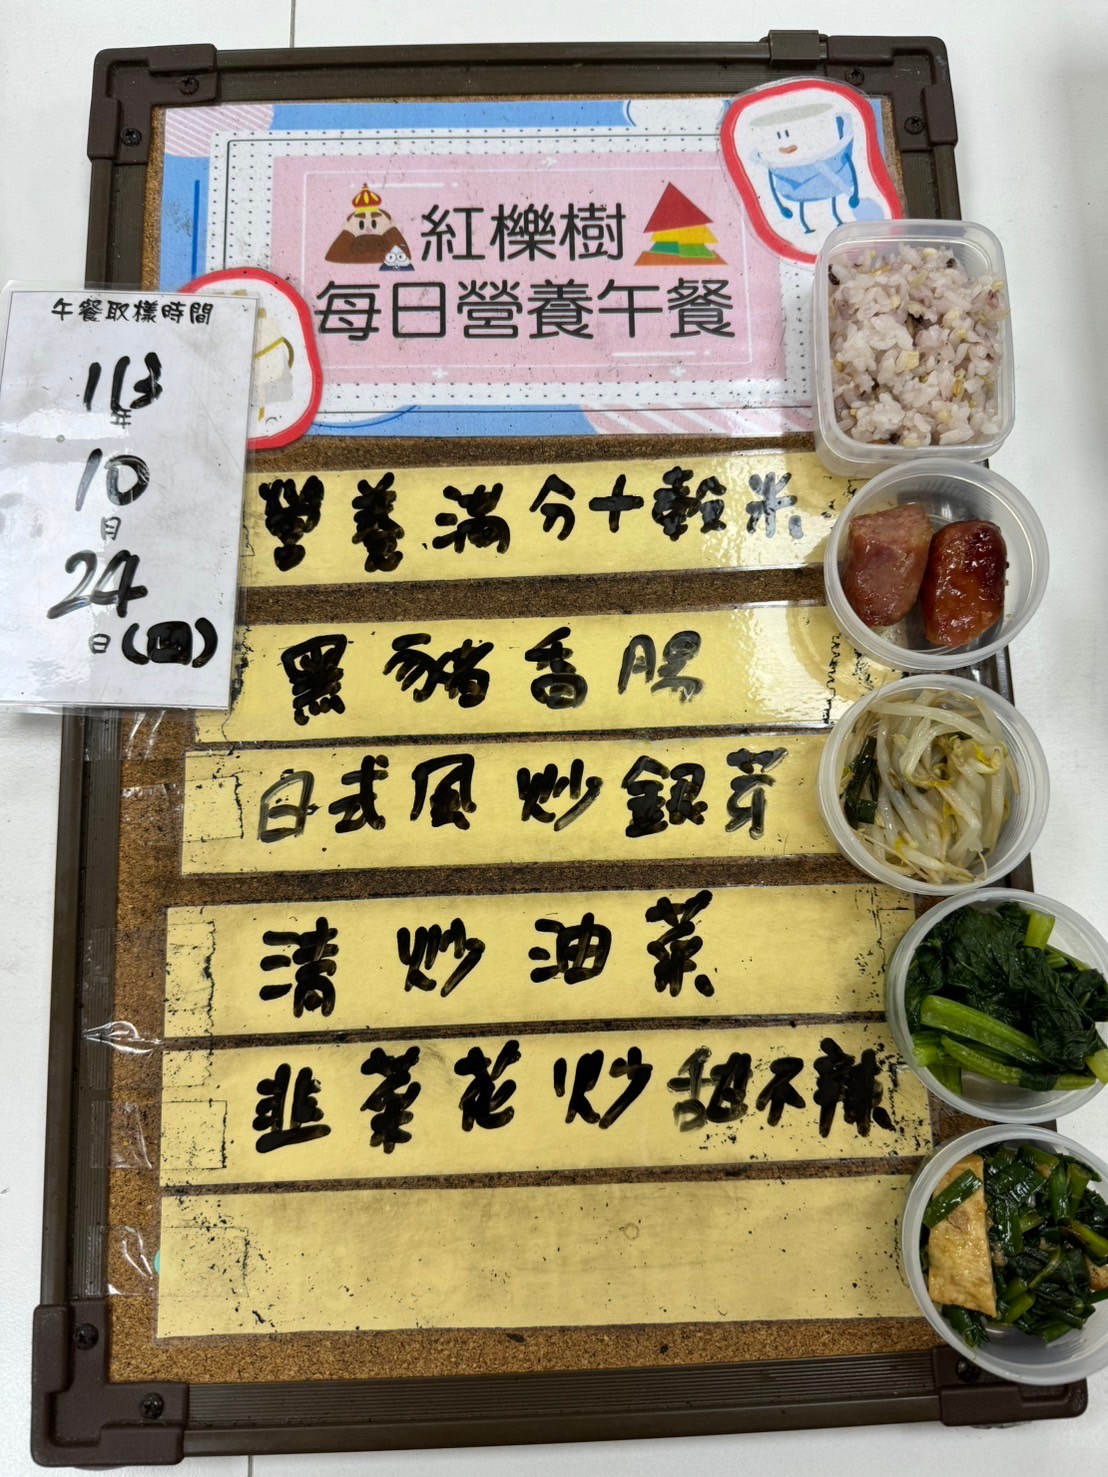 紅櫟樹
每日營養午餐
午餐取樣時間
113
年
10
月
24
日(四)
營養滿分十穀米
黑豬香腸
日式風炒銀芽
清炒油菜
韭菜花炒甜不辣